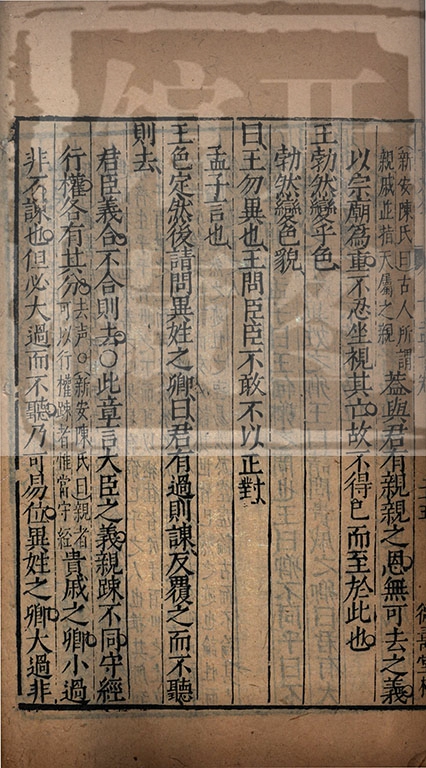 新安陳氏曰古人所謂親戚正指天屬之親蓋與君有親親之恩無可去之義
以宗廟為重不忍坐視其亡故不得已而至於此也
王勃然變乎色
勃然變色貌
曰王勿異也王問臣臣不敢不以正對
孟子言也
王色定然後請問異姓之卿曰君有過則諫反覆之而不聽
則去
君臣義合不合則去○此章言大臣之義親疎不同守經
行權各有其分去声○新安陳氏曰親者可以行權疎者惟當守經貴戚之卿小過
非不諫也但必大過而不聽乃可易位異姓之卿大過非